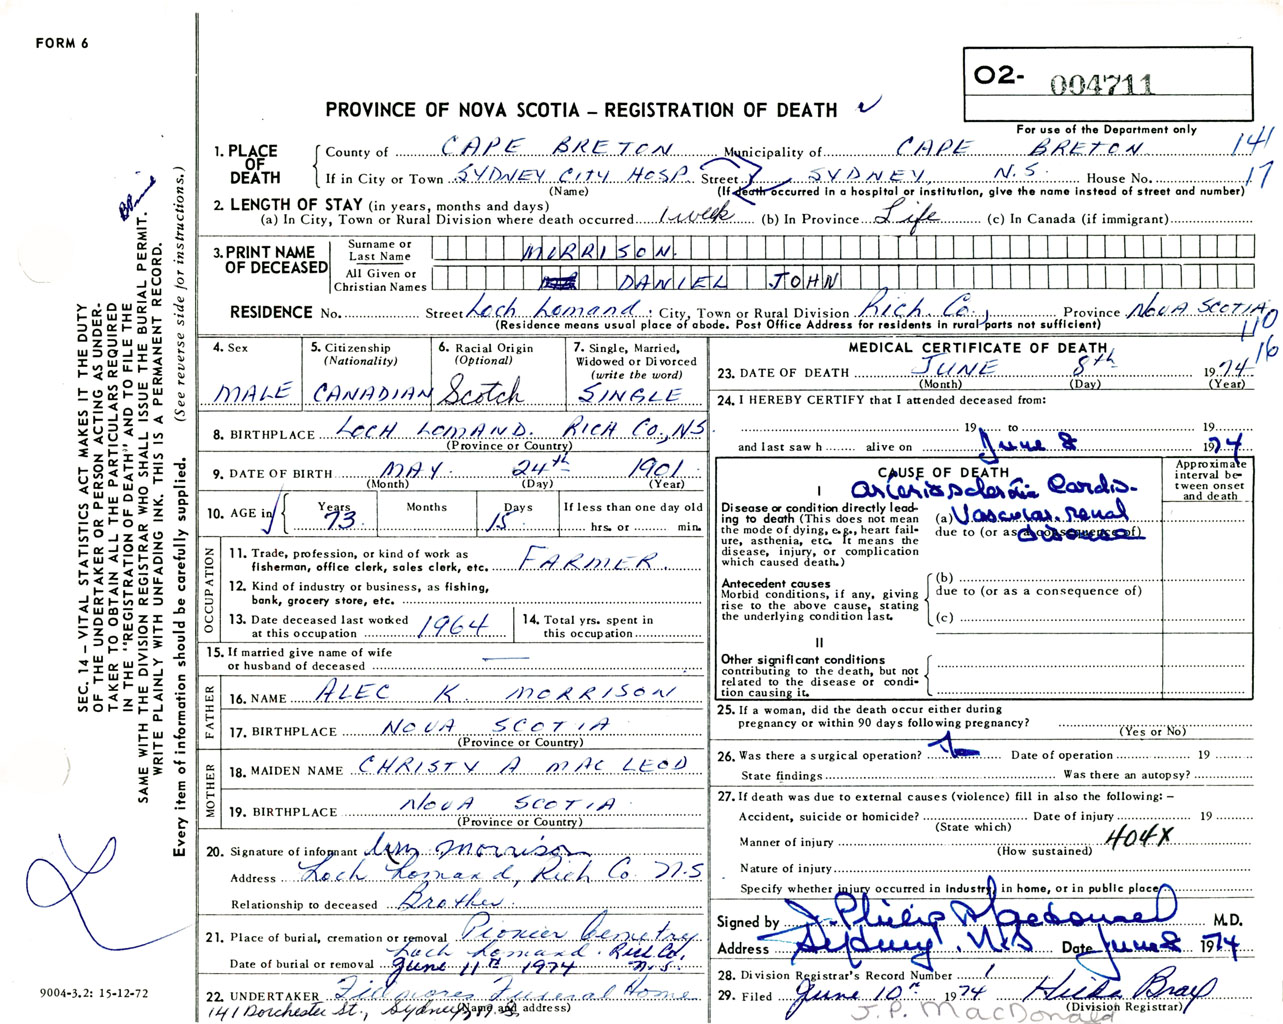 FORM 6
O2- 004711
PROVINCE OF NOVA SCOTIA – REGISTRATION OF DEATH
For use of the Department only
1. PLACE OF DEATH
County of CAPE BRETON Municipality of CAPE BRETON 141
If in City or Town SYDNEY CITY HOSP. Street SYDNEY, N.S. House No. 17
(Name) (If death occurred in a hospital or institution, give the name instead of street and number)
2. LENGTH OF STAY (in years, months and days)
(a) In City, Town or Rural Division where death occurred 1 week (b) In Province Life (c) In Canada (if immigrant)
3. PRINT NAME OF DECEASED
Surname or Last Name MORRISON.
All Given or Christian Names DANIEL JOHN
RESIDENCE No. Street Loch Lomand. City, Town or Rural Division Rich. Co., Province NOVA SCOTIA
(Residence means usual place of abode. Post Office Address for residents in rural parts not sufficient)
110
16
4. Sex
MALE
5. Citizenship (Nationality)
CANADIAN
6. Racial Origin (Optional)
Scotch
7. Single, Married, Widowed or Divorced (write the word)
SINGLE
8. BIRTHPLACE LOCH LOMAND. RICH CO., N.S.
(Province or Country)
9. DATE OF BIRTH MAY. 24th 1901.
(Month) (Day) (Year)
10. AGE in Years 73 Months Days 15 If less than one day old hrs. or min.
OCCUPATION
11. Trade, profession, or kind of work as fisherman, office clerk, sales clerk, etc. FARMER.
12. Kind of industry or business, as fishing, bank, grocery store, etc.
13. Date deceased last worked at this occupation 1964
14. Total yrs. spent in this occupation
15. If married give name of wife or husband of deceased —
FATHER
16. NAME ALEC K. MORRISON
17. BIRTHPLACE NOVA SCOTIA
(Province or Country)
MOTHER
18. MAIDEN NAME CHRISTY A MAC LEOD
19. BIRTHPLACE NOVA SCOTIA.
(Province or Country)
20. Signature of informant Morrison
Address Loch Lomand, Rich Co. N.S
Relationship to deceased Brother
21. Place of burial, cremation or removal Pionier Cemetry
Loch Lomand. Rich Co. N.S.
Date of burial or removal June 11th 1974
22. UNDERTAKER Fillmores Funeral Home
(Name and address)
141 Dorchester St., Sydney, N.S.
MEDICAL CERTIFICATE OF DEATH
23. DATE OF DEATH JUNE 8th 1974
(Month) (Day) (Year)
24. I HEREBY CERTIFY that I attended deceased from:
19 to 19
and last saw h alive on June 8 1974
CAUSE OF DEATH
Approximate interval between onset and death
I
Disease or condition directly leading to death (This does not mean the mode of dying, e.g., heart failure, asthenia, etc. It means the disease, injury, or complication which caused death.)
Arteriosclerotic Cardio-
(a) Vascular. renal
due to (or as a consequence of)
disease
Antecedent causes
Morbid conditions, if any, giving rise to the above cause, stating the underlying condition last.
(b)
due to (or as a consequence of)
(c)
II
Other significant conditions contributing to the death, but not related to the disease or condition causing it.
25. If a woman, did the death occur either during pregnancy or within 90 days following pregnancy?
(Yes or No)
26. Was there a surgical operation? Date of operation 19
State findings Was there an autopsy?
27. If death was due to external causes (violence) fill in also the following: –
Accident, suicide or homicide? Date of injury 19
(State which)
Manner of injury 404X
(How sustained)
Nature of injury
Specify whether injury occurred in Industry, in home, or in public place
Signed by J. Philip Macdonald M.D.
Address Sydney. N.S Date June 8 1974
28. Division Registrar's Record Number 1
29. Filed June 10th 1974 Hilda Bray
(Division Registrar)
J.P. MacDonald
SEC. 14 – VITAL STATISTICS ACT MAKES IT THE DUTY
OF THE UNDERTAKER OR PERSON ACTING AS UNDER-
TAKER TO OBTAIN ALL THE PARTICULARS REQUIRED
IN THE "REGISTRATION OF DEATH" AND TO FILE THE
SAME WITH THE DIVISION REGISTRAR WHO SHALL ISSUE THE BURIAL PERMIT.
WRITE PLAINLY WITH UNFADING INK. THIS IS A PERMANENT RECORD.
Every item of information should be carefully supplied. (See reverse side for instructions.)
9004-3.2: 15-12-72